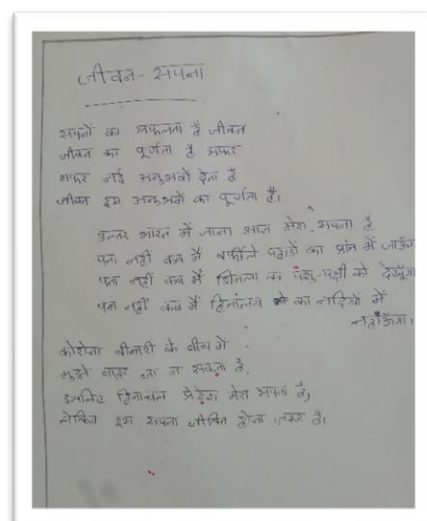 जीवन - सपना
सपनों का सफलता है जीवन
जीवन का पूर्णता है सफर
सफर नई अनुभवों देता है
जीवन इस अनुभवों का पूर्णता है।
उत्तर भारत में जाना आज मेरा सपना है
पता नहीं कब मैं बर्फीले पहाड़ों का प्रांत में जाऊँगा
पता नहीं कब मैं शिमला का पशु-पक्षी को देखूँगा
पता नहीं कब मैं हिमालय का नदियों में
नहाऊँगा।
कोरोना बीमारी के बीच में
मुझे बाहर जा न सकता है,
इसलिए हिमाचल प्रदेश मेरा सपना है,
लेकिन इस सपना जीवित होना जरूर है।